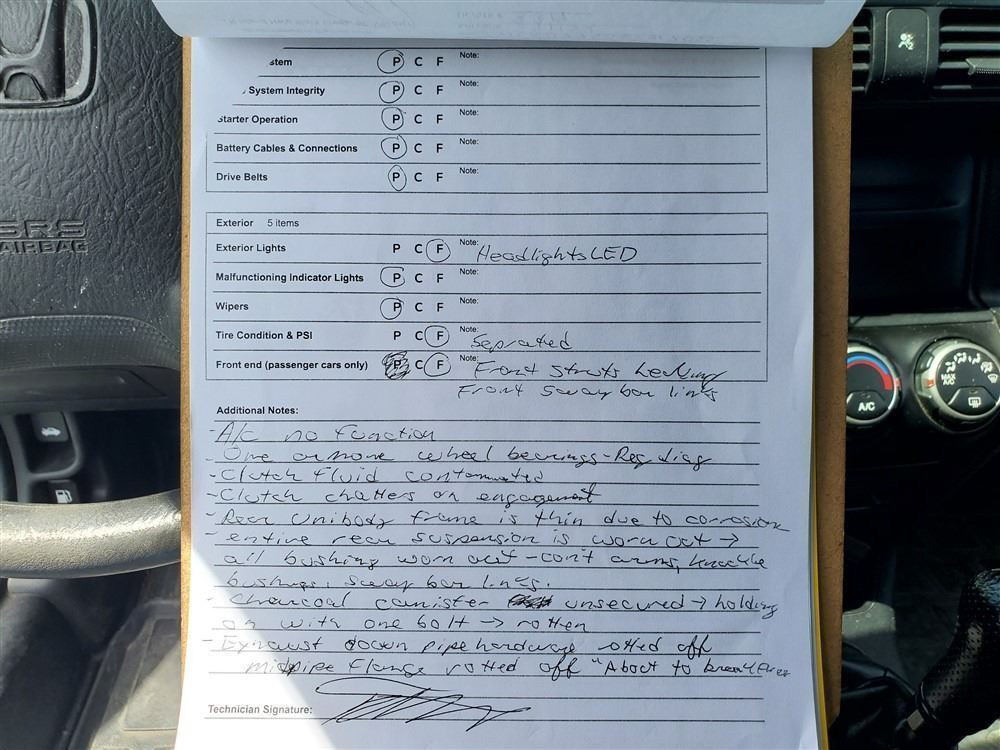 stem P C F Note:
System Integrity P C F Note:
Starter Operation P C F Note:
Battery Cables & Connections P C F Note:
Drive Belts P C F Note:
Exterior 5 items
Exterior Lights P C F Note: Headlights LED
Malfunctioning Indicator Lights P C F Note:
Wipers P C F Note:
Tire Condition & PSI P C F Note: Seprated
Front end (passenger cars only) P C F Note: Front Struts leaking
Front sway bar links
Additional Notes:
- A/c no function
- One or more wheel bearings - Req diag
- Clutch fluid contaminated
- Clutch chatters on engagement
- Rear Unibody frame is thin due to corrosion
- entire rear suspension is worn out →
all bushing worn out - cont arms, knuckle
bushings, sway bar links.
- Charcoal canister unsecured → holding
on with one bolt → rotten
- Exhaust down pipe hardware rotted off
midpipe flange rotted off "About to break free
Technician Signature:
SRS
AIRBAG
A/C
MAX A/C